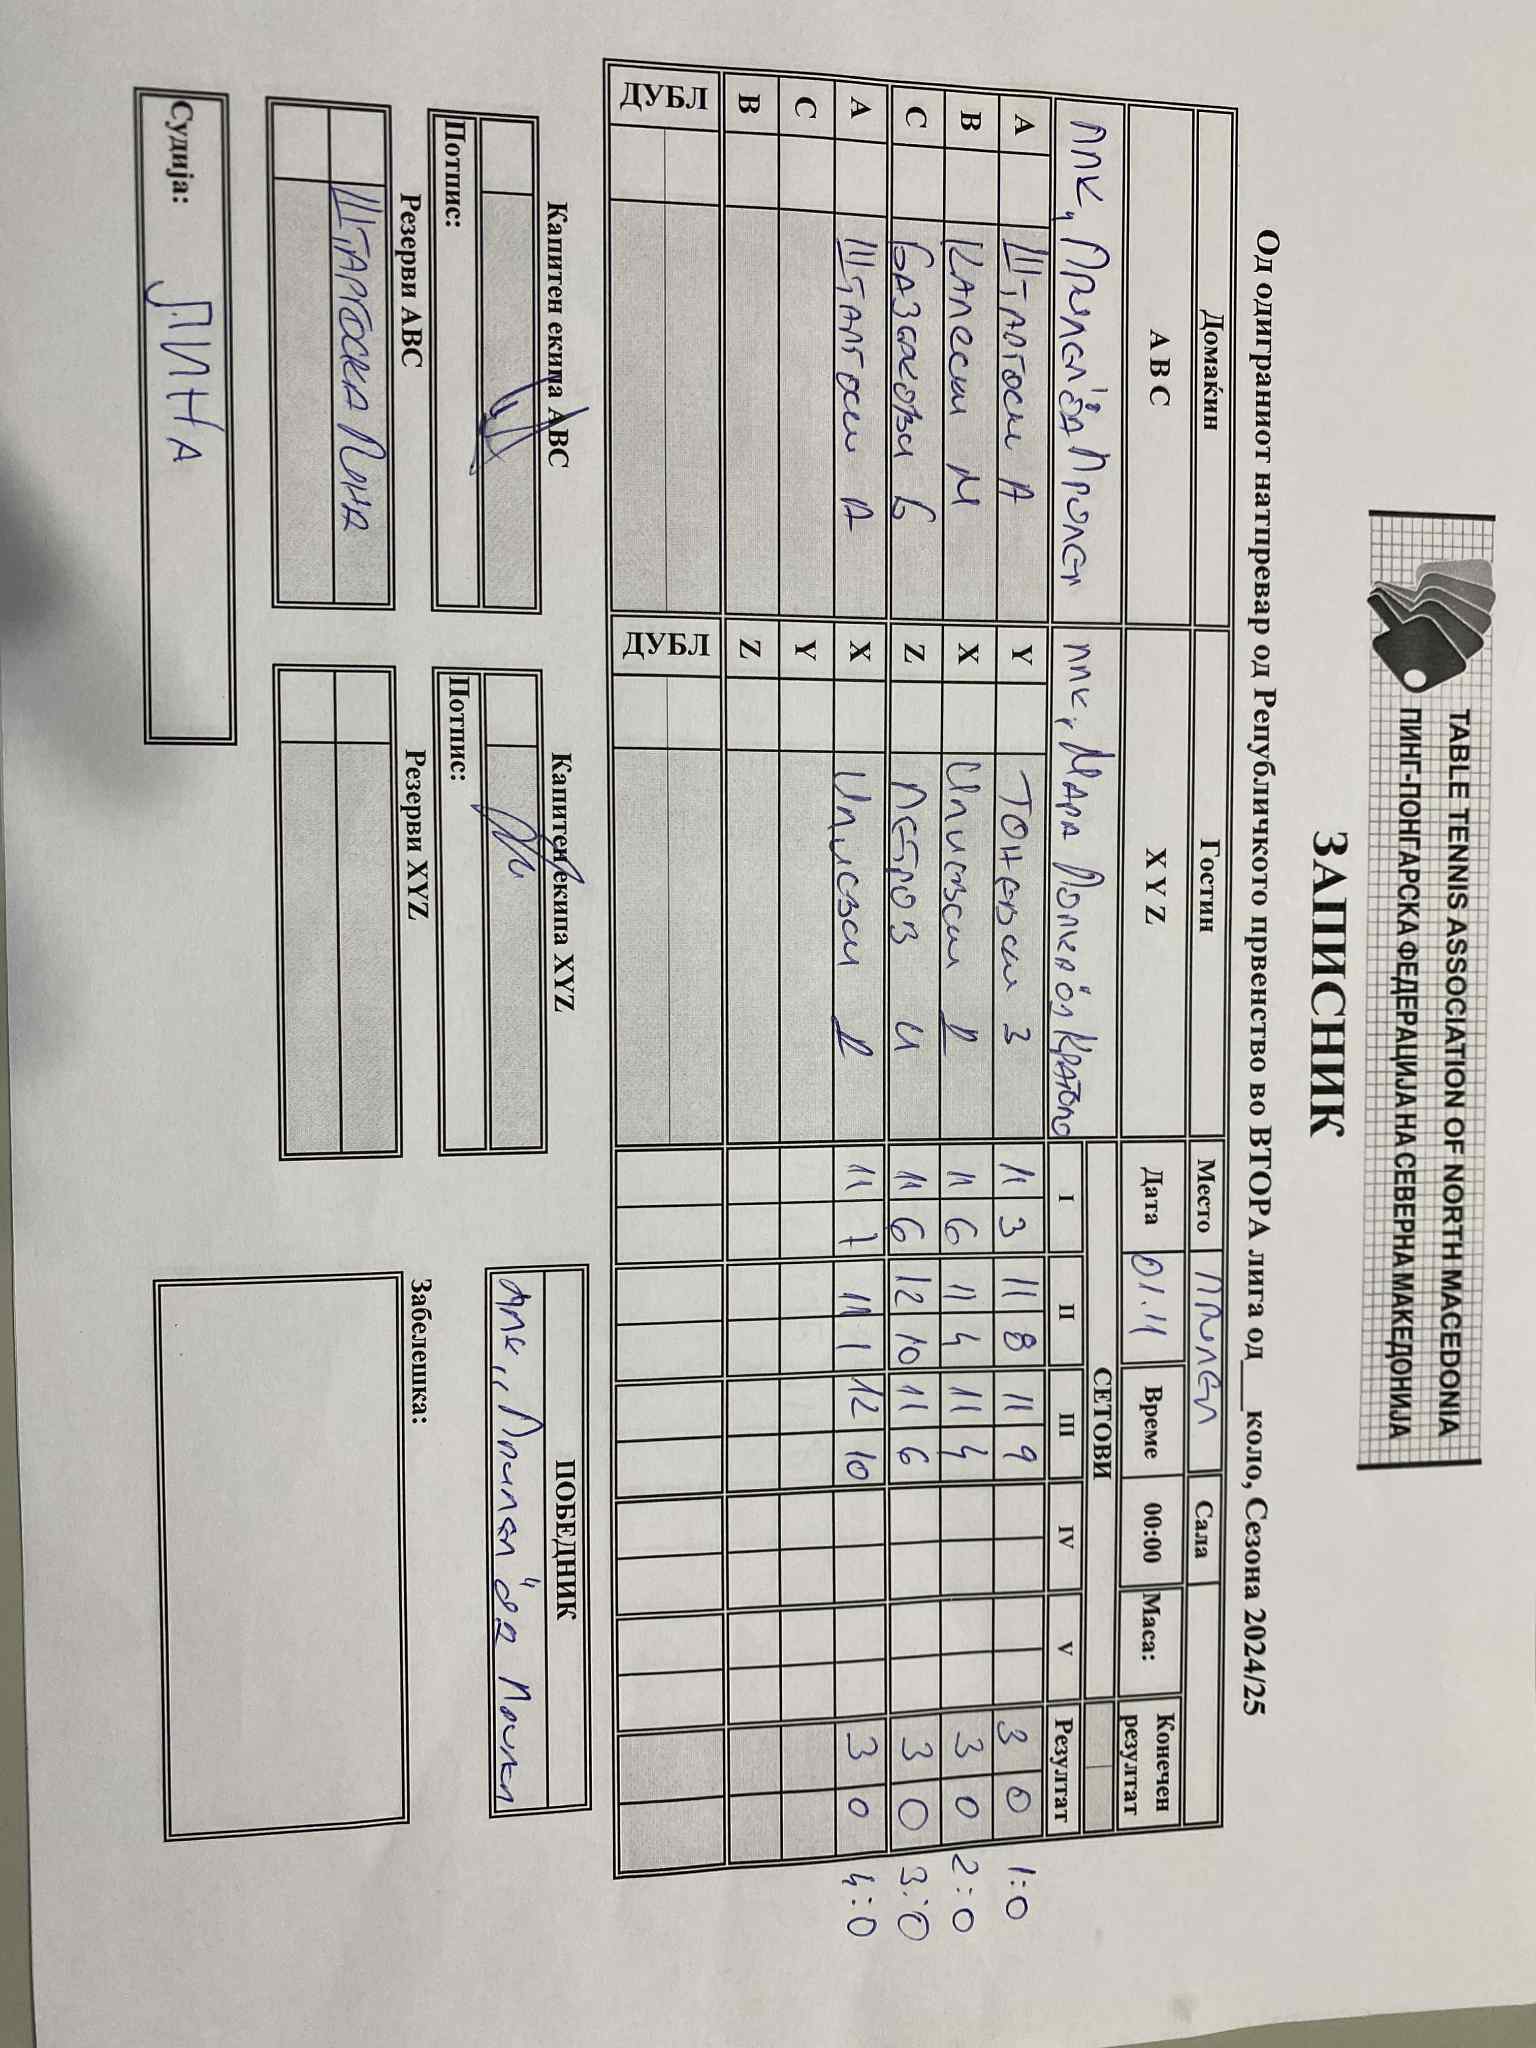 TABLE TENNIS ASSOCIATION OF NORTH MACEDONIA
ПИНГ-ПОНГАРСКА ФЕДЕРАЦИЈА НА СЕВЕРНА МАКЕДОНИЈА
ЗАПИСНИК
Од одиграниот натпревар од Републичкото првенство во ВТОРА лига од___коло, Сезона 2024/25
Домаќин Гостин Место Прилеп Сала
A B C X Y Z Дата 01.11 Време 00:00 Маса: Конечен резултат
ППК „Прилеп 88" Прилеп ППК „Мара Попка" од Кратово СЕТОВИ
I II III IV V Резултат
A Штаргоски А Y Тоневски З 11 3 11 8 11 9 3 0 1:0
B Капески М X Илиевски Д 11 6 11 4 11 4 3 0 2:0
C Базакови Б Z Петров И 11 6 12 10 11 6 3 0 3:0
A Штаргоски А X Илиевски Д 11 7 11 1 12 10 3 0 4:0
C Y
B Z
ДУБЛ ДУБЛ
Капитен екипа ABC Капитен екипа XYZ ПОБЕДНИК
ППК „Прилеп" 82 Прилеп
Потпис: Потпис:
Резерви ABC Резерви XYZ Забелешка:
Штаргоска Лина
Судија: ЛИНА